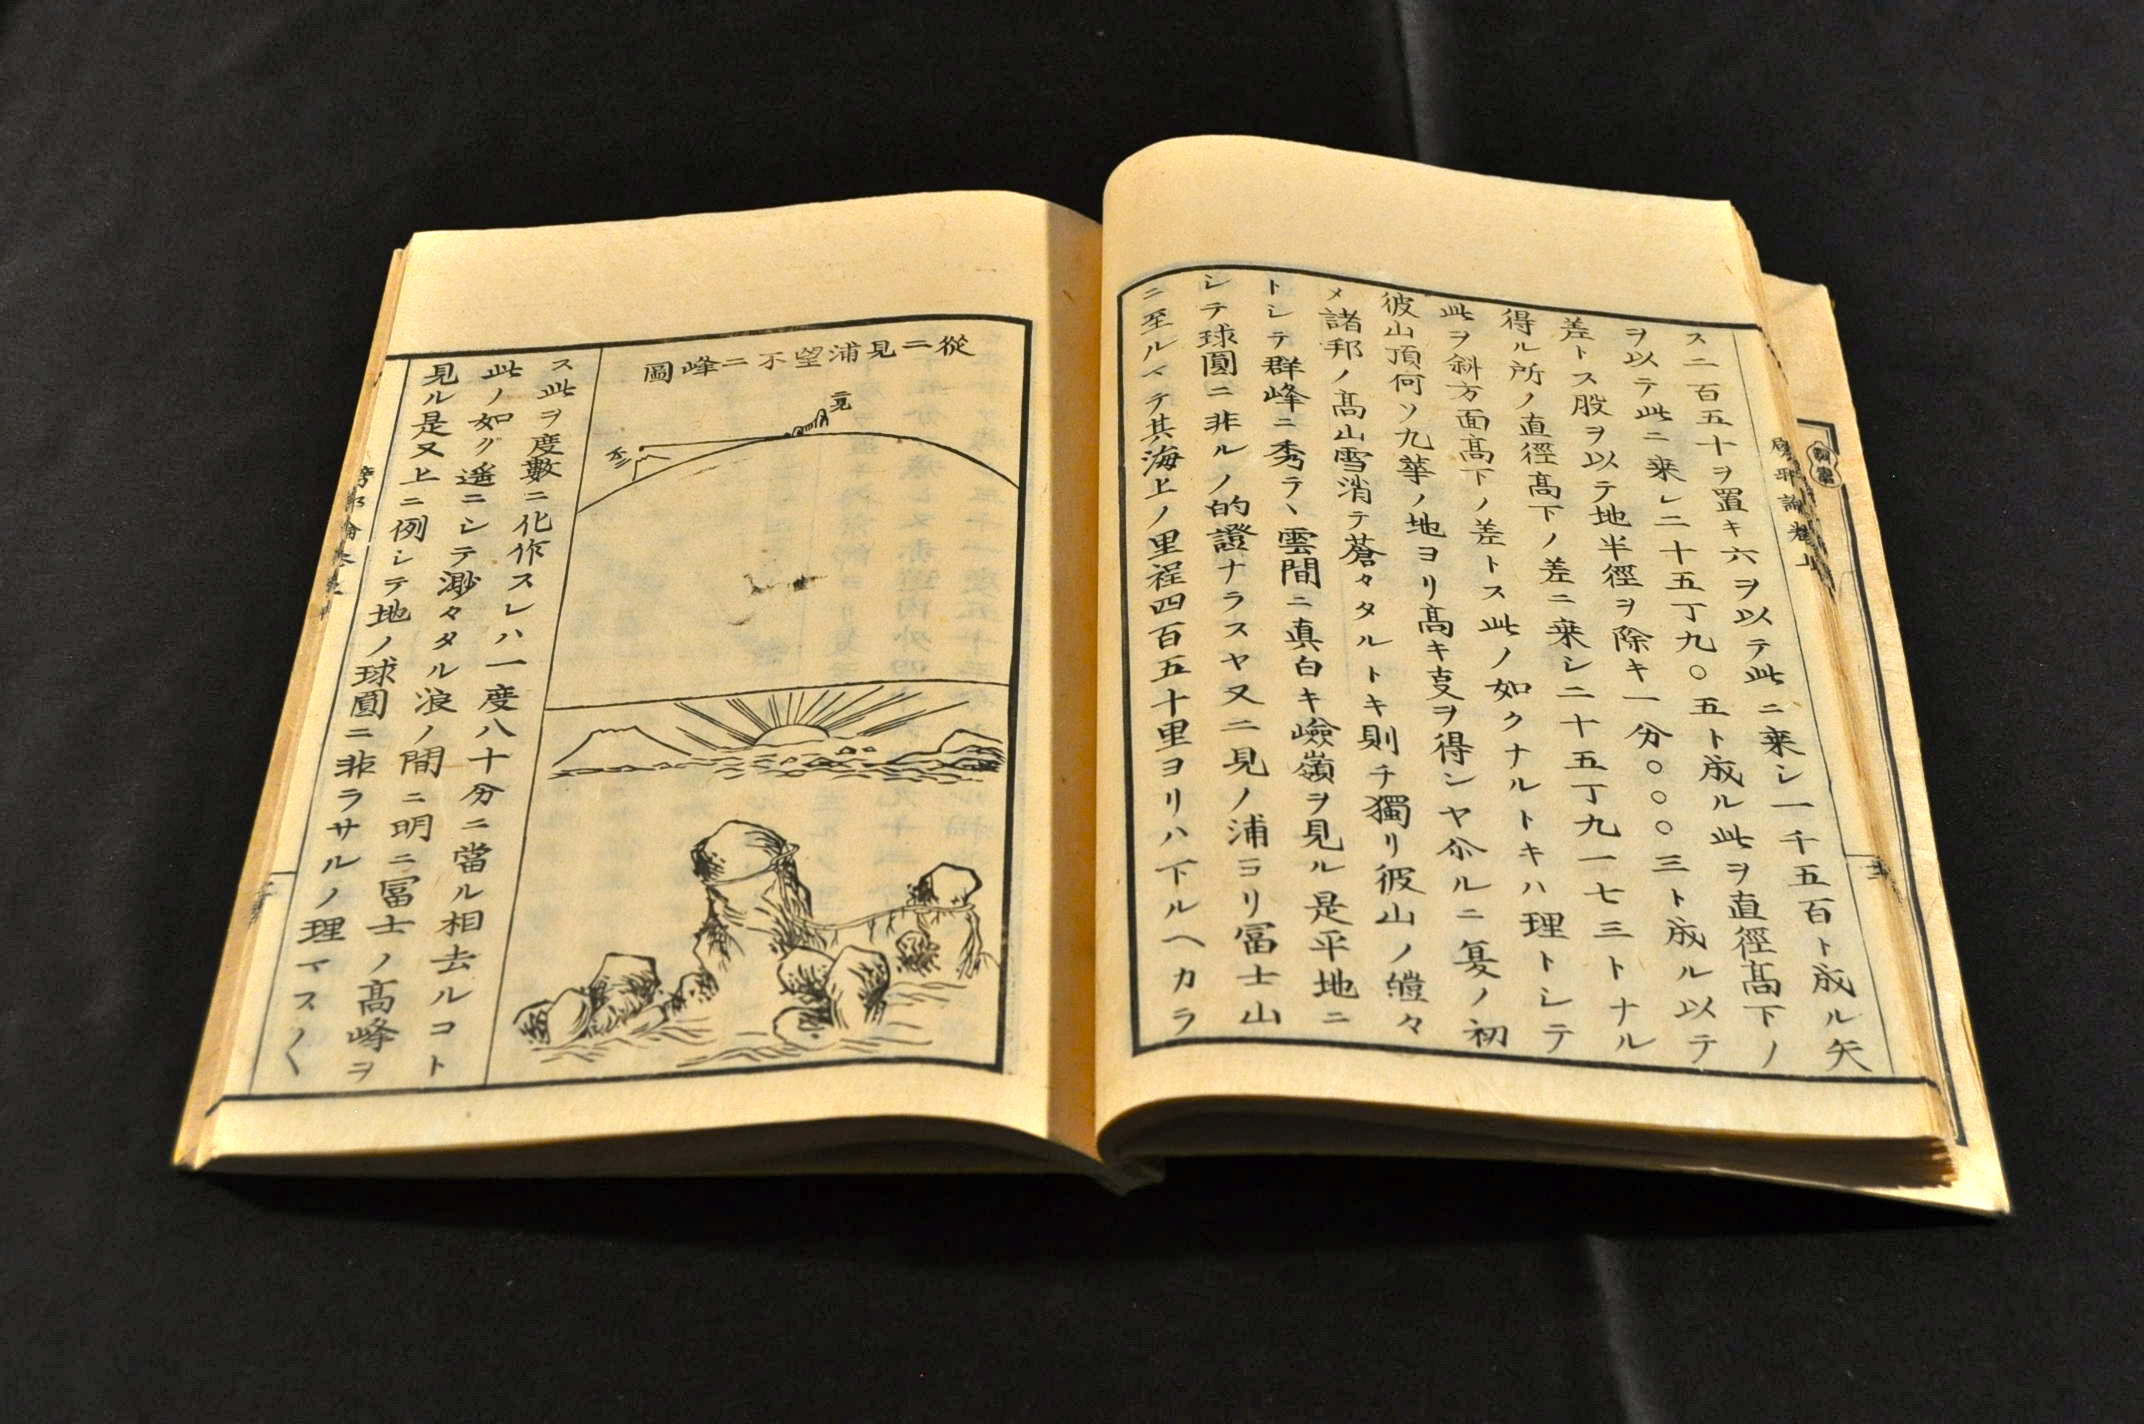 ス二百五十ヲ置キ六ヲ以テ此ニ乗シ一千五百ト成ル矢
ヲ以テ此ニ乗レ二十五丁九〇五ト成ル此ヲ直徑髙下ノ
差トス股ヲ以テ地半徑ヲ除キ一分〇〇〇三ト成ル以テ
得ル所ノ直徑髙下ノ差ニ乗シ二十五丁九一七三トナル
此ヲ斜方面髙下ノ差トス此ノ如クナルトキハ理トシテ
彼山頂何ソ九華ノ地ヨリ髙キヿヲ得ンヤ尒ルニ夏ノ初
メ諸邦ノ髙山雪消テ蒼々タルトキ則チ獨リ彼山ノ皚々
トシテ群峰ニ秀テヽ雲間ニ真白キ嶮嶺ヲ見ル是平地ニ
シテ球圓ニ非ルノ的證ナラスヤ又二見ノ浦ヨリ冨士山
ニ至ルマテ其海上ノ里程四百五十里ヨリハ下ルヘカラ
從二見浦望不二峰圖
二見
不二
ス此ヲ度數ニ化作スレハ一度八十分ニ當ル相去ルコト
此ノ如ク遥ニシテ渺々タル浪ノ間ニ明ニ冨士ノ髙峰ヲ
見ル是又上ニ例シテ地ノ球圓ニ非ラサルノ理マス〱